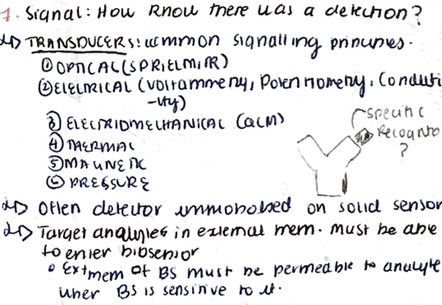 1. Signal: How know there was a detection?
↳ TRANSDUCERs: common signalling principles.
① OPTICAL (SPR, ELM, IR)
② ELELRICAL (Voltammetry, Potentiometry, Conductivi
-ty)
③ ELECTROMECHANICAL (QCM)
④ THERMAL
⑤ MAGNETIC
⑥ PRESSURE
specific
Recognito
?
↳ Often detector immobolsed on solid sensor
↳ Target analytes in external mem. must be able
to enter biosensor
° Ext mem of BS must be permeable to analyte
when BS is sensitive to it.